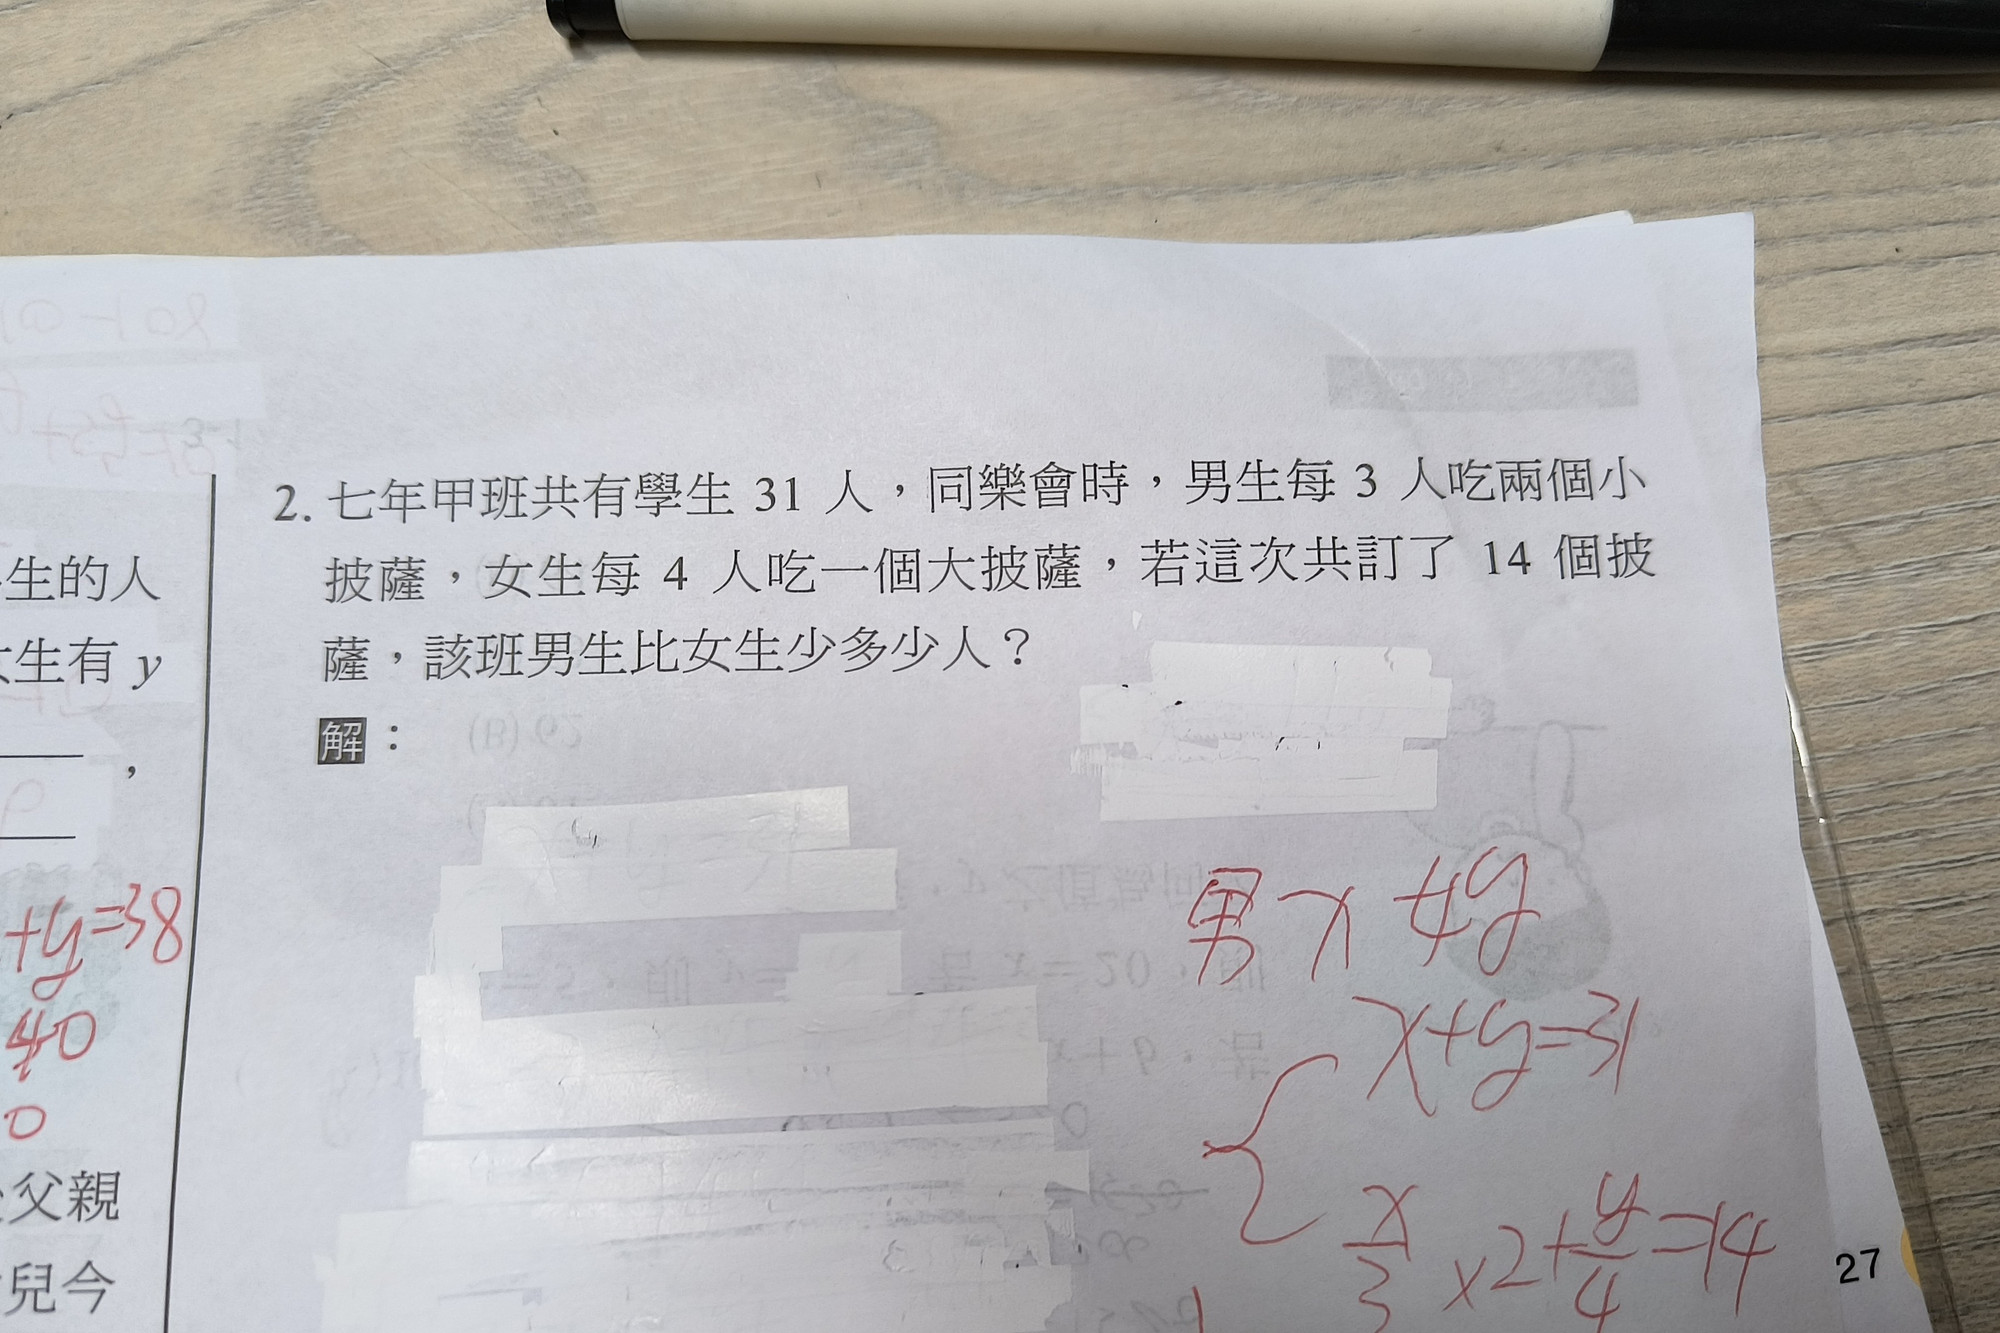 2. 七年甲班共有學生 31 人，同樂會時，男生每 3 人吃兩個小
披薩，女生每 4 人吃一個大披薩，若這次共訂了 14 個披
薩，該班男生比女生少多少人？
解：
男 x 女 y
x+y=31
x/3 ×2+y/4=14
27
生的人
女生有 y
，
+y=38
40
0
父親
兒今